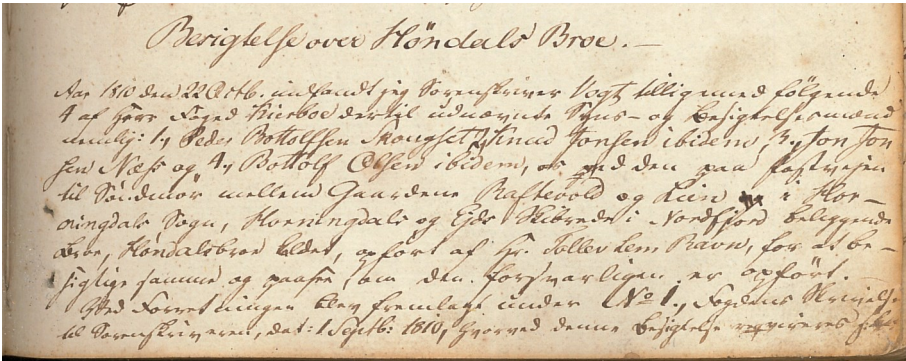 Besigtelse over Höndals Broe. —
Aar 1810 den 22 Octb. indfandt jeg Sorenskriver Vogt tilligemed fölgende
4 af Herr Foged Kierboe dertil udnævnte Syns- og Besigtelsesmænd
nemlig: 1, Peder Bottolfsen Skougset, 2, Knud Jonsen ibidem, 3, Jon Jon
sen Næss og 4, Bottolf Olsen ibidem, os ved den paa Postvejen
til Söndmör mellem Gaardene Raftevold og Lien i Hor-
ningdals Sogn, Horningdals og Eids Skibrede i Nordfjord beliggende
Broe, Höndalsbroe kaldet, opfört af Hr. Ravn, for at be-
sigtige samme og paasee, om den forsvarligen er opfört.
Ved Forretningen blev fremlagt under No 1, Fogdens Skrivelse
til Sorenskriveren, dat: 1 Septb: 1810, hvorved denne Besigtelse reqvireres